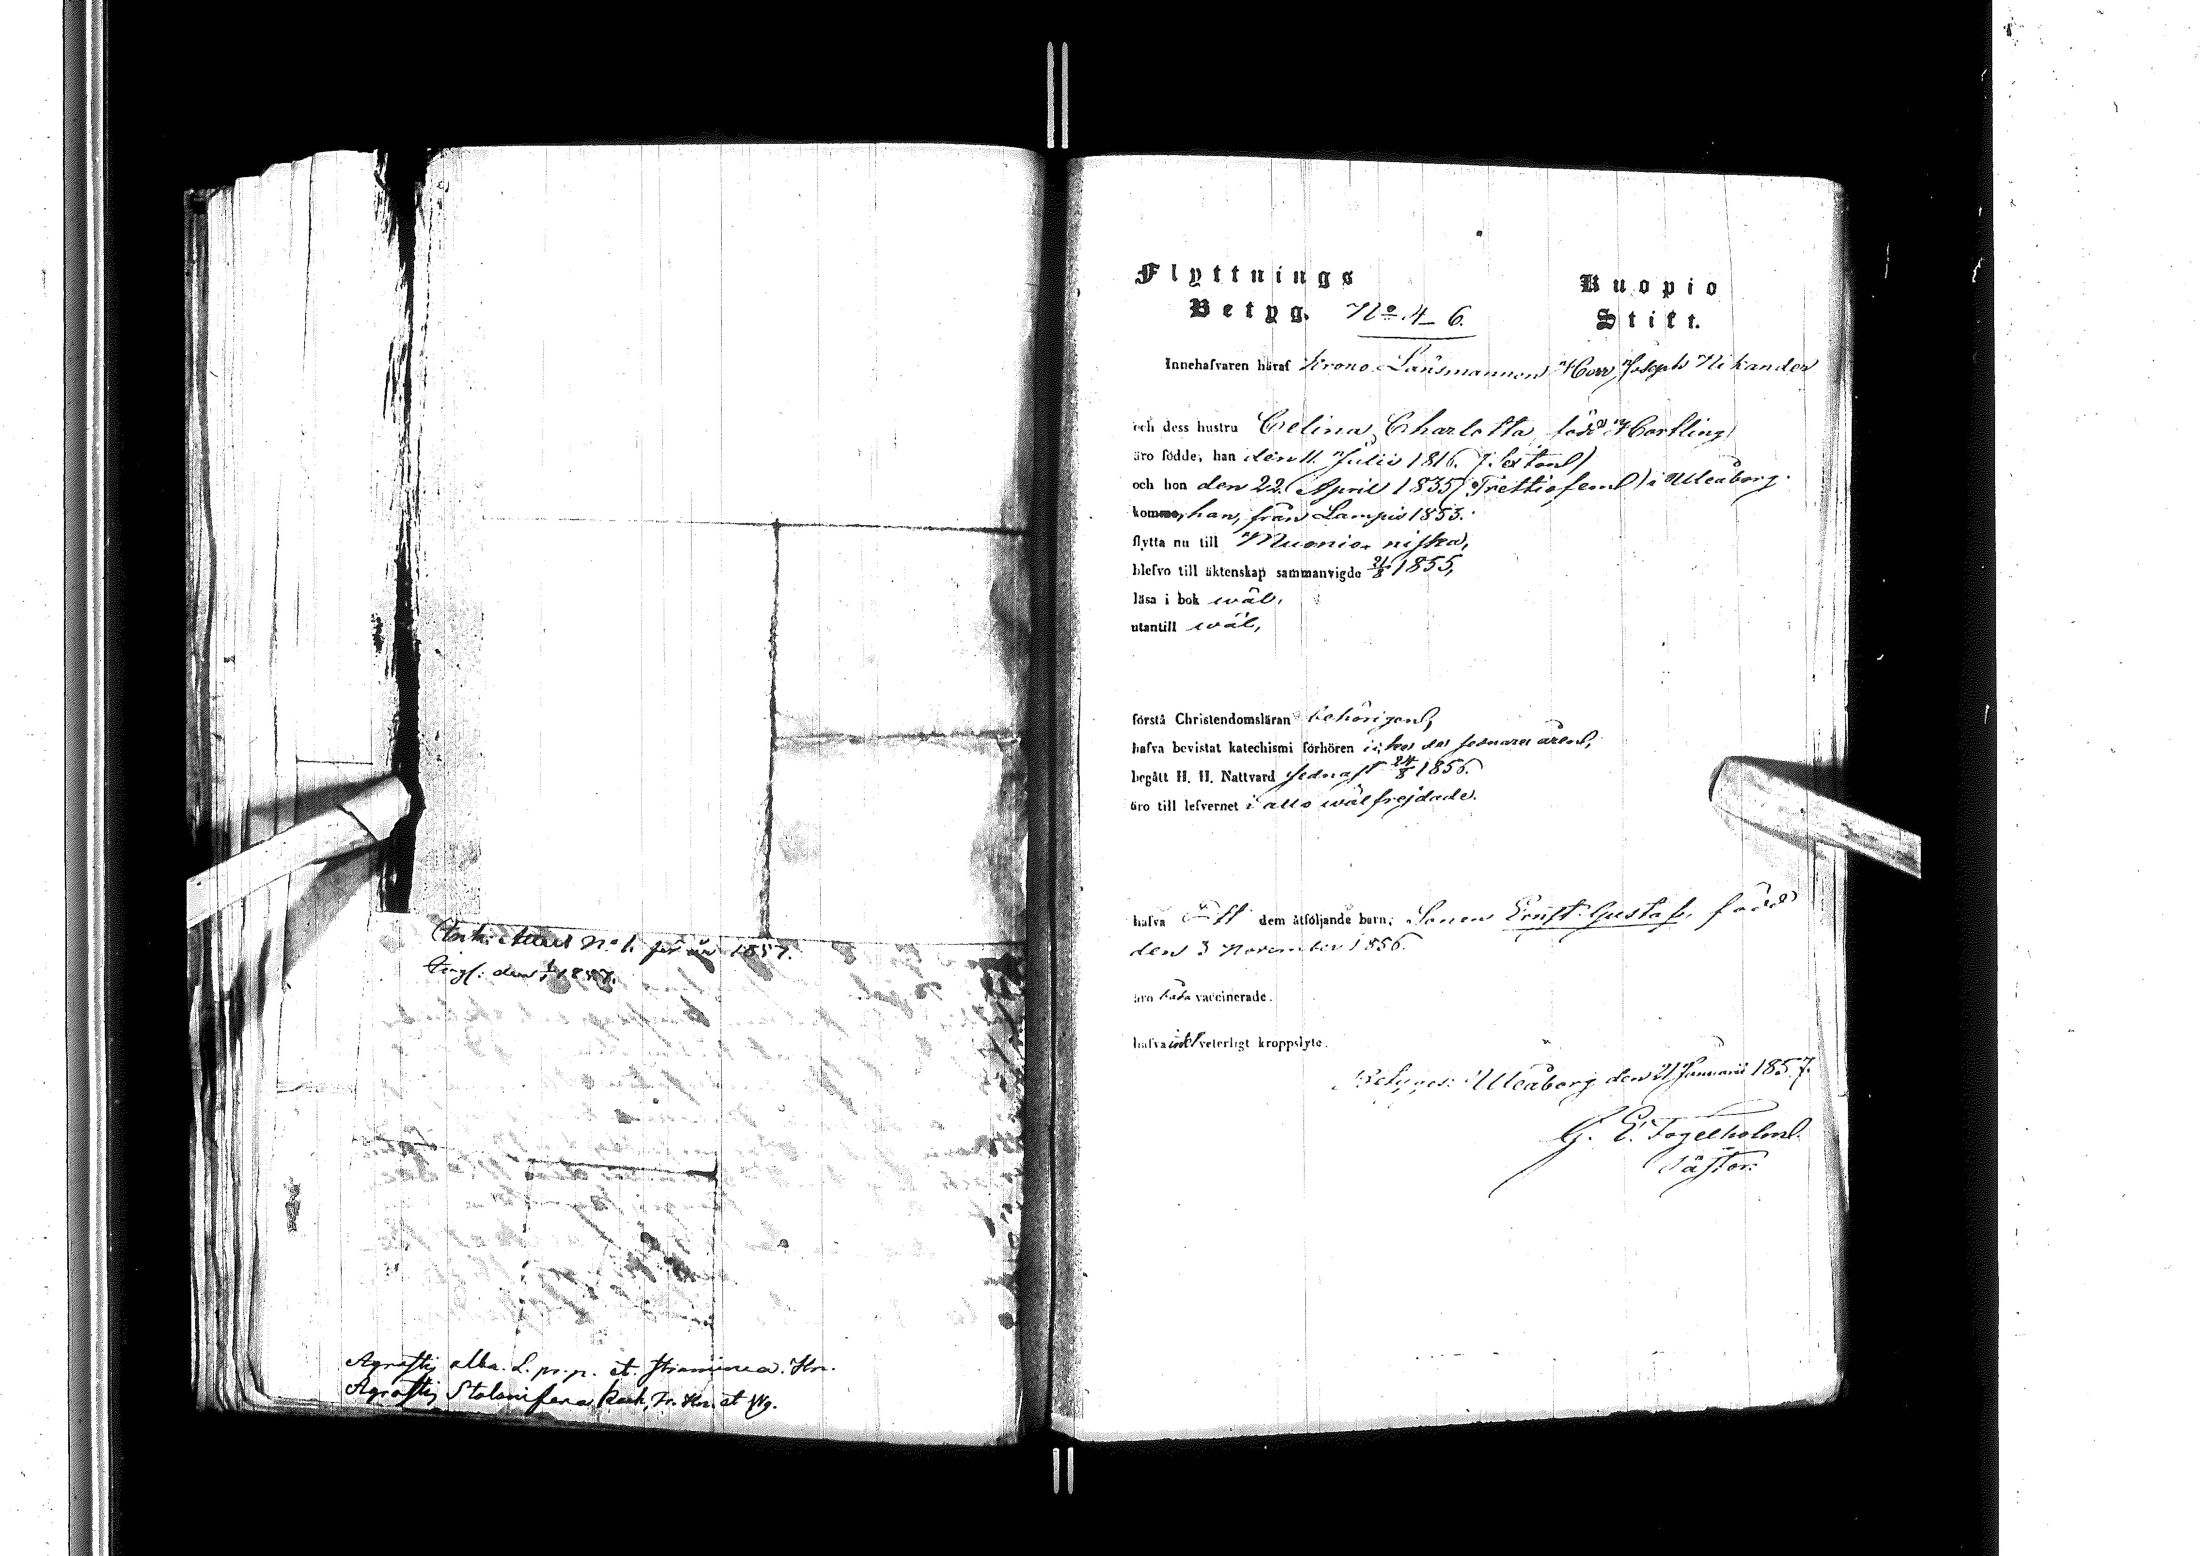 No 1. för år 1857.
Agrostis alba. L. pr. p. et. straminea. Hn.
Agrostis Stolonifera Koch, Fr. Hn. et Wg.
Flyttnings
Betyg. No 4–6.
Kuopio
Stift.
Innehafvaren häraf Krono Länsmannen Herr Joseph Nikander
och dess hustru Celina Charlotta född Hortling
äro födde, han den 11. Julii 1816. (Sexton)
och hon den 22. April 1835 (Trettiofem) i Uleåborg.
komne, han, från Lampis 1853.
flytta nu till Muonioniska,
blefvo till äktenskap sammanvigde 21/8 1855,
läsa i bok wäl,
utantill wäl,
förstå Christendomsläran behörigen,
hafva bevistat katechismi förhören icke de sednare åren,
begått H. H. Nattvard sednast 24/8 1856.
äro till lefvernet i allo wälfrejdade.
hafva Ett dem åtföljande barn; Sonen Ernst Gustaf, född
den 3 November 1856.
äro båda vaccinerade.
hafva intet veterligt kroppslyte.
Betyges: Uleåborg den 21 Januarii 1857.
G. E. Fogelholm.
Pastor.